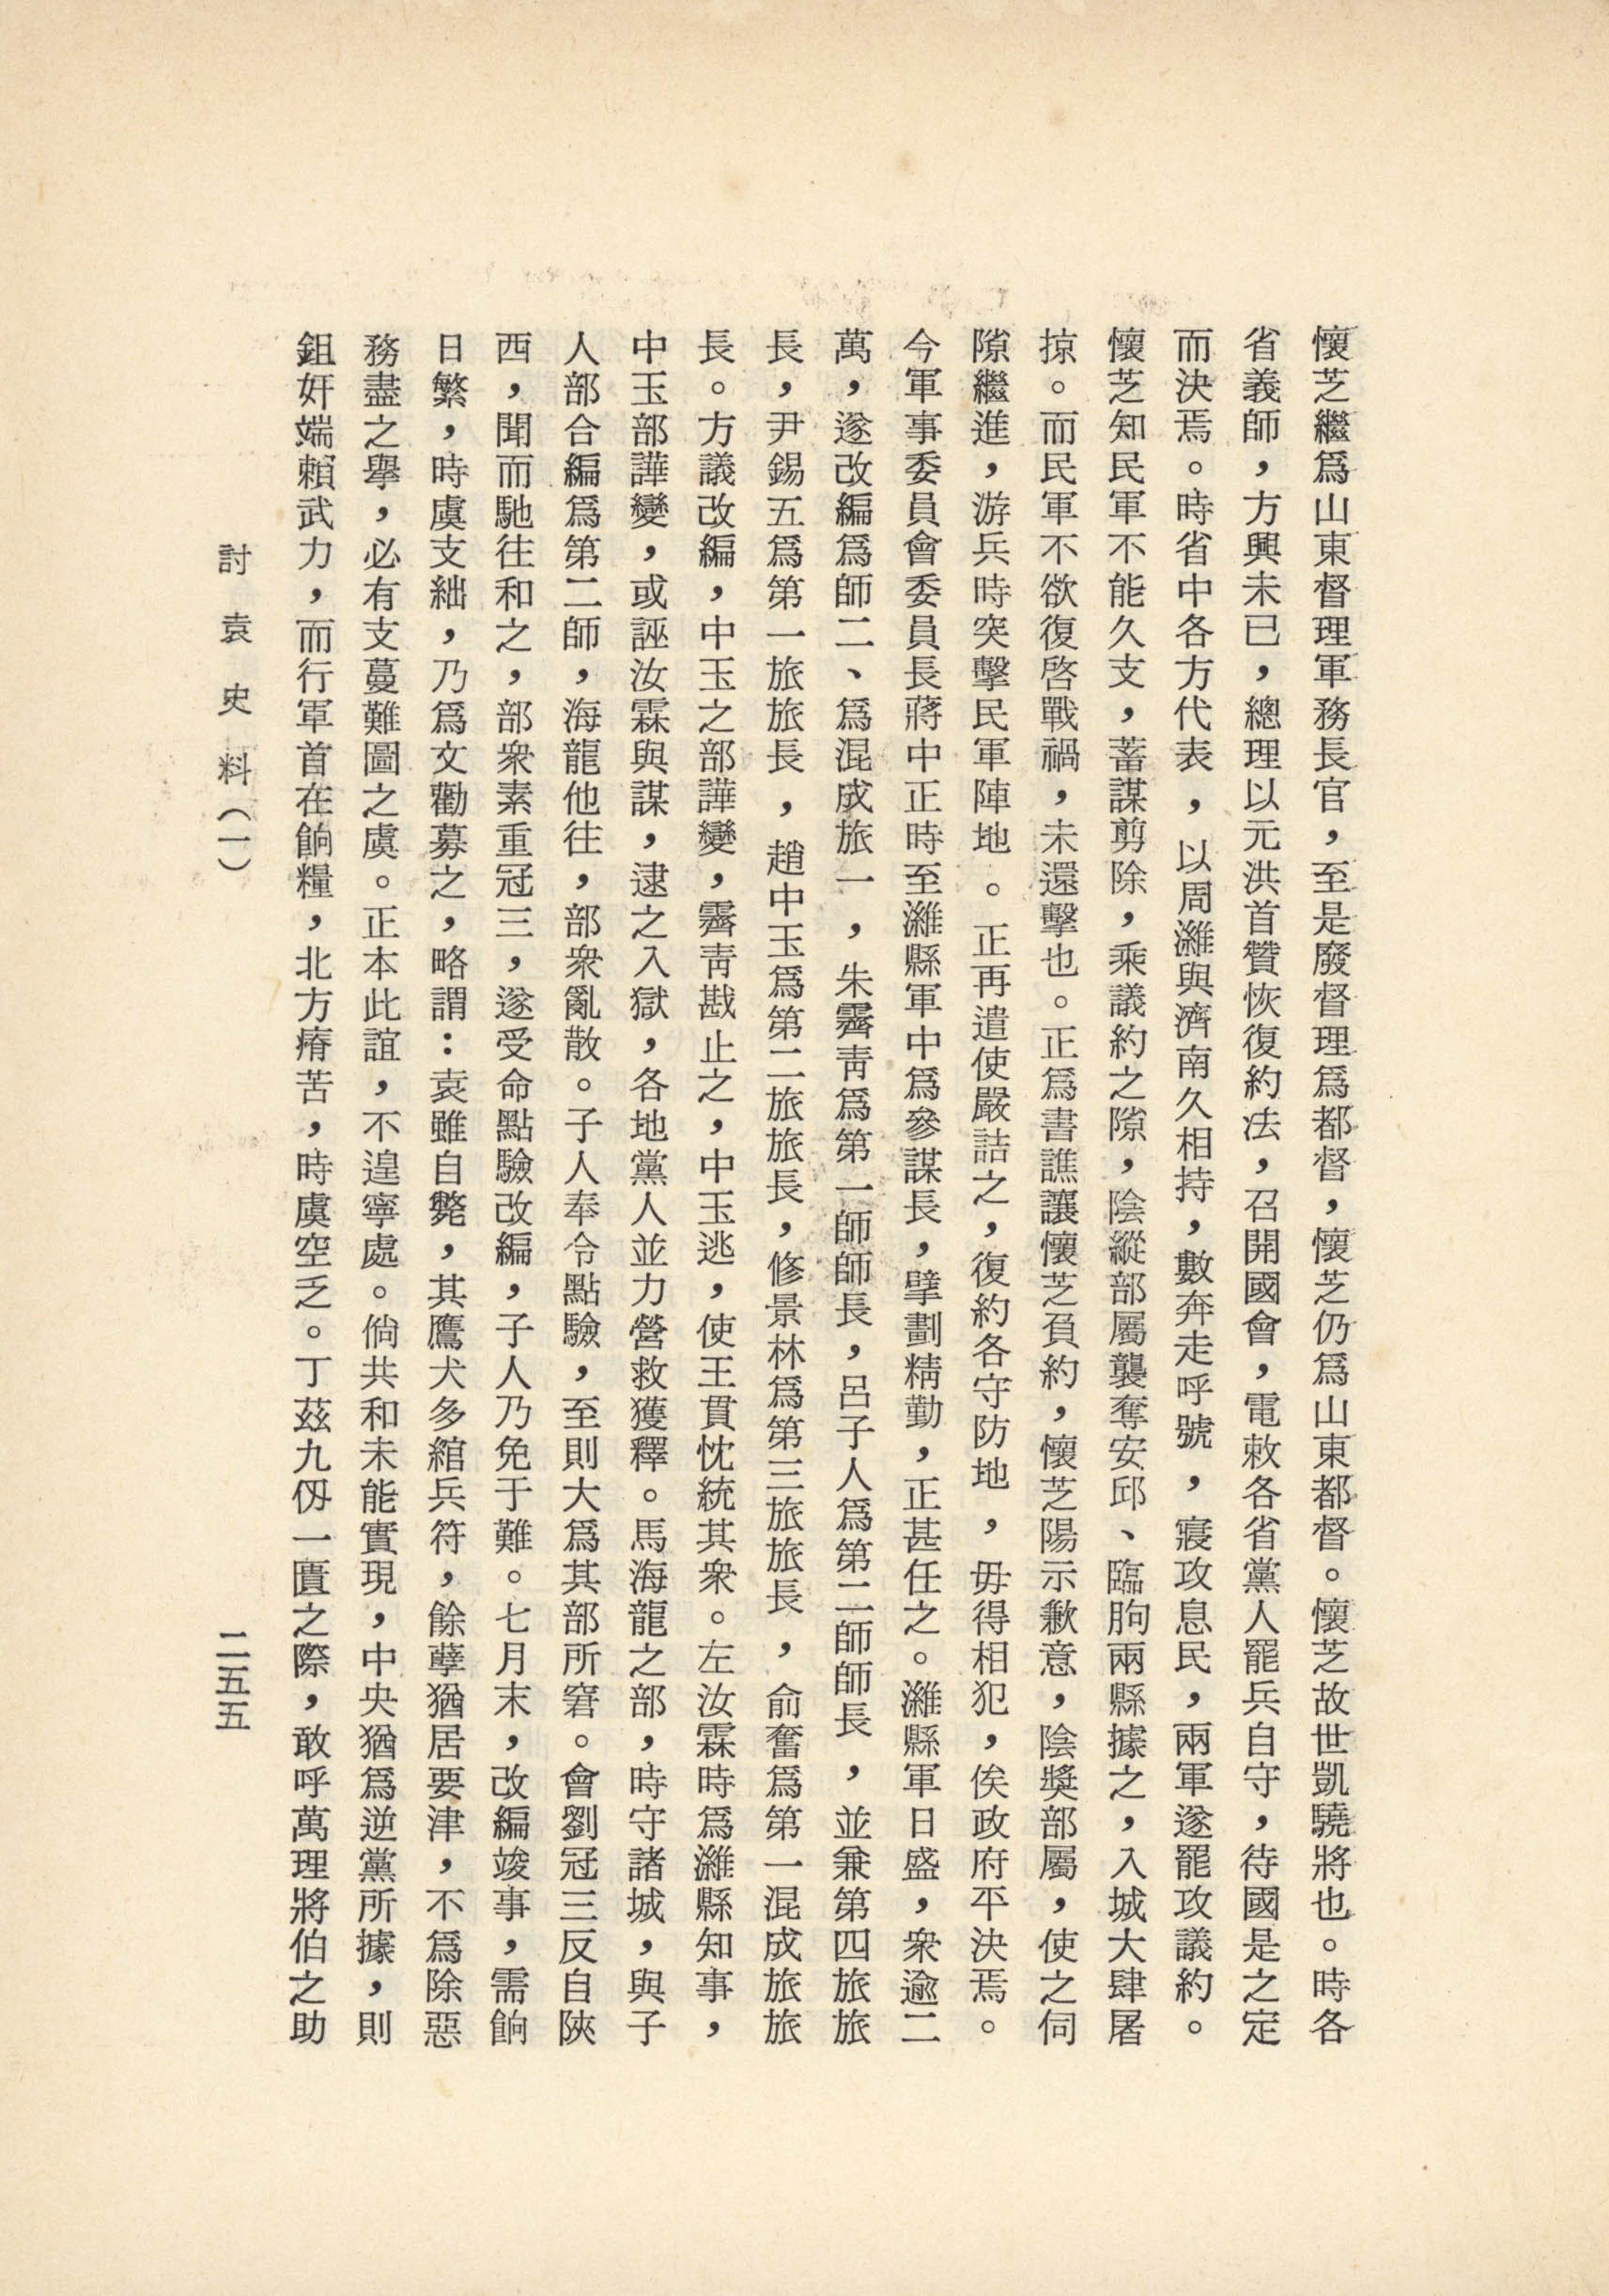 懷芝繼爲山東督理軍務長官，至是廢督理爲都督，懷芝仍爲山東都督。懷芝故世凱驍將也。時各
省義師，方興未已，總理以元洪首贊恢復約法，召開國會，電敕各省黨人罷兵自守，待國是之定
而決焉。時省中各方代表，以周濰與濟南久相持，數奔走呼號，寢攻息民，兩軍遂罷攻議約。
懷芝知民軍不能久支，蓄謀剪除，乘議約之隙，陰縱部屬襲奪安邱、臨朐兩縣據之，入城大肆屠
掠。而民軍不欲復啓戰禍，未還擊也。正爲書譙讓懷芝負約，懷芝陽示歉意，陰獎部屬，使之伺
隙繼進，游兵時突擊民軍陣地。正再遣使嚴詰之，復約各守防地，毋得相犯，俟政府平決焉。
今軍事委員會委員長蔣中正時至濰縣軍中爲參謀長，擘劃精勤，正甚任之。濰縣軍日盛，衆逾二
萬，遂改編爲師二、爲混成旅一，朱霽靑爲第一師師長，呂子人爲第二師師長，並兼第四旅旅
長，尹錫五爲第一旅旅長，趙中玉爲第二旅旅長，修景林爲第三旅旅長，俞奮爲第一混成旅旅
長。方議改編，中玉之部譁變，霽靑戡止之，中玉逃，使王貫忱統其衆。左汝霖時爲濰縣知事，
中玉部譁變，或誣汝霖與謀，逮之入獄，各地黨人並力營救獲釋。馬海龍之部，時守諸城，與子
人部合編爲第二師，海龍他往，部衆亂散。子人奉令點驗，至則大爲其部所窘。會劉冠三反自陝
西，聞而馳往和之，部衆素重冠三，遂受命點驗改編，子人乃免于難。七月末，改編竣事，需餉
日繁，時虞支絀，乃爲文勸募之，略謂：袁雖自斃，其鷹犬多綰兵符，餘孽猶居要津，不爲除惡
務盡之擧，必有支蔓難圖之虞。正本此誼，不遑寧處。倘共和未能實現，中央猶爲逆黨所據，則
鉏奸端賴武力，而行軍首在餉糧，北方瘠苦，時虞空乏。丁茲九仭一匱之際，敢呼萬理將伯之助
討袁史料（一）
二五五